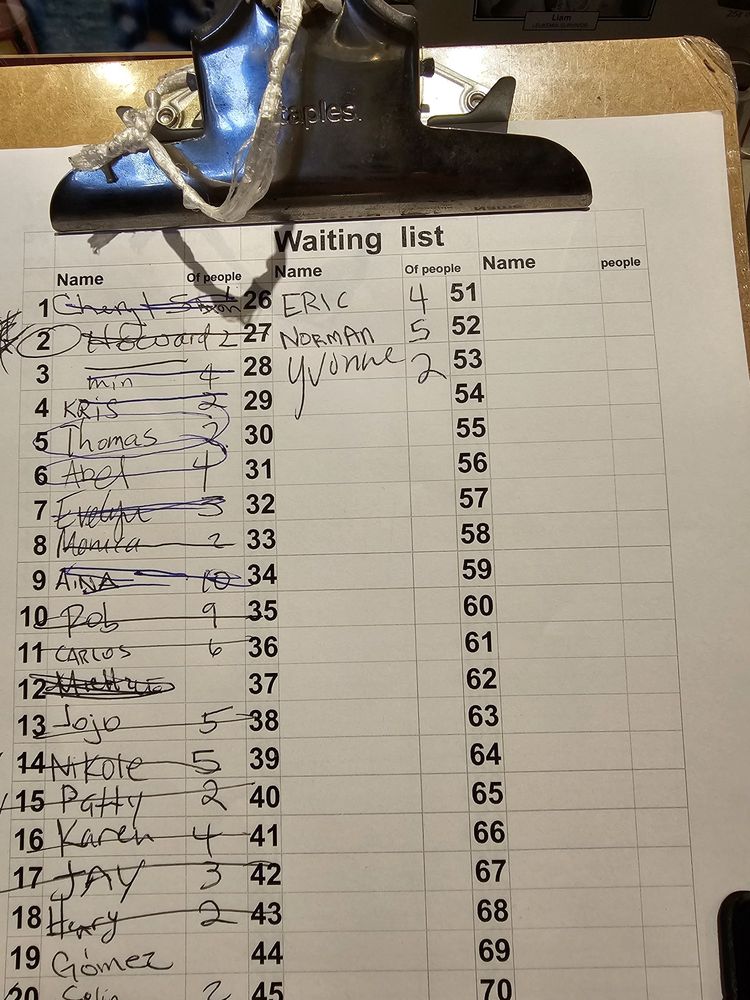 Liam
taples.
Waiting list
Name Of people Name Of people Name people
1 Cheryl 26 ERIC 4 51
2 Howard 2 27 NORMAN 5 52
3 min 4 28 Yvonne 2 53
4 KRIS 2 29 54
5 Thomas 2 30 55
6 Abel 4 31 56
7 Evelyn 3 32 57
8 Monica 2 33 58
9 AiNA 10 34 59
10 Rob 9 35 60
11 CARLOS 6 36 61
12 37 62
13 Jojo 5 38 63
14 NiKole 5 39 64
15 Patty 2 40 65
16 Karen 4 41 66
17 JAY 3 42 67
18 Henry 2 43 68
19 Gómez 44 69
20 2 45 70